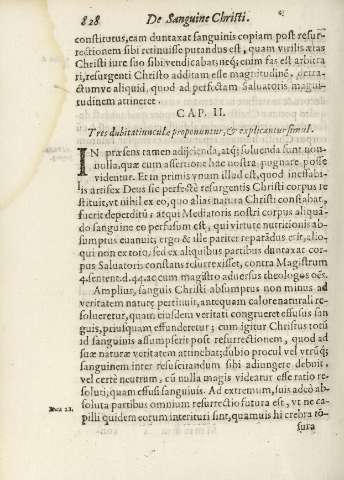 828 De Sanguine Christi.
constitutus, eam duntaxat sanguinis copiam post resur-
rectionem sibi retinuisse putandus est, quam virilis ætas
Christi iure suo sibi vendicabat, neq; enim fas est arbitra
ri, resurgenti Christo additam esse magnitudinē, detra-
ctumve aliquid, quod ad perfectam Saluatoris magni-
tudinem attineret.
CAP. II.
Tres dubitatiunculæ proponuntur, & explicantur simul.
IN præsens tamen adijcienda, atq; soluenda sunt non-
nulla, quæ cum assertione hac nostra pugnare posse
videntur. Et in primis vnum illud est, quod ineffabi-
lis artifex Deus sic perfectè resurgentis Christi corpus re
stituit, vt nihil ex eo, quo alias natura Christi constabat,
fuerit deperditū: atqui Mediatoris nostri corpus aliquā-
do sanguine eo perfusum est, qui virtute nutritionis ab-
sumptus euanuit; ergo & ille pariter reparādus est, alio-
qui non ex toto, sed ex aliquibus partibus duntaxat cor-
pus Saluatoris constans resurrexisset, contra Magistrum
4. sentent. d. 44. ac cum magistro aduersus theologos oēs.
Amplius, sanguis Christi absumptus non minus ad
veritatem naturæ pertinuit, antequam calore naturali re-
solueretur, quam eiusdem veritati congrueret effusus san
guis, priusquam effunderetur; cum igitur Christus totū
id sanguinis assumpserit post resurrectionem, quod ad
suæ naturæ veritatem attinebat; dubio procul vel vtrūq;
sanguinem inter resuscitandum sibi adiungere debuit,
vel certè neutrum, cū nulla magis videatur esse ratio re-
soluti, quam effusi sanguinis. Ad extremum, suis adeò ab-
soluta partibus omnium resurrectio futura est, vt ne ca-
Luca 21. pilli quidem eorum interituri sint, quamuis hi crebra tō-
sura